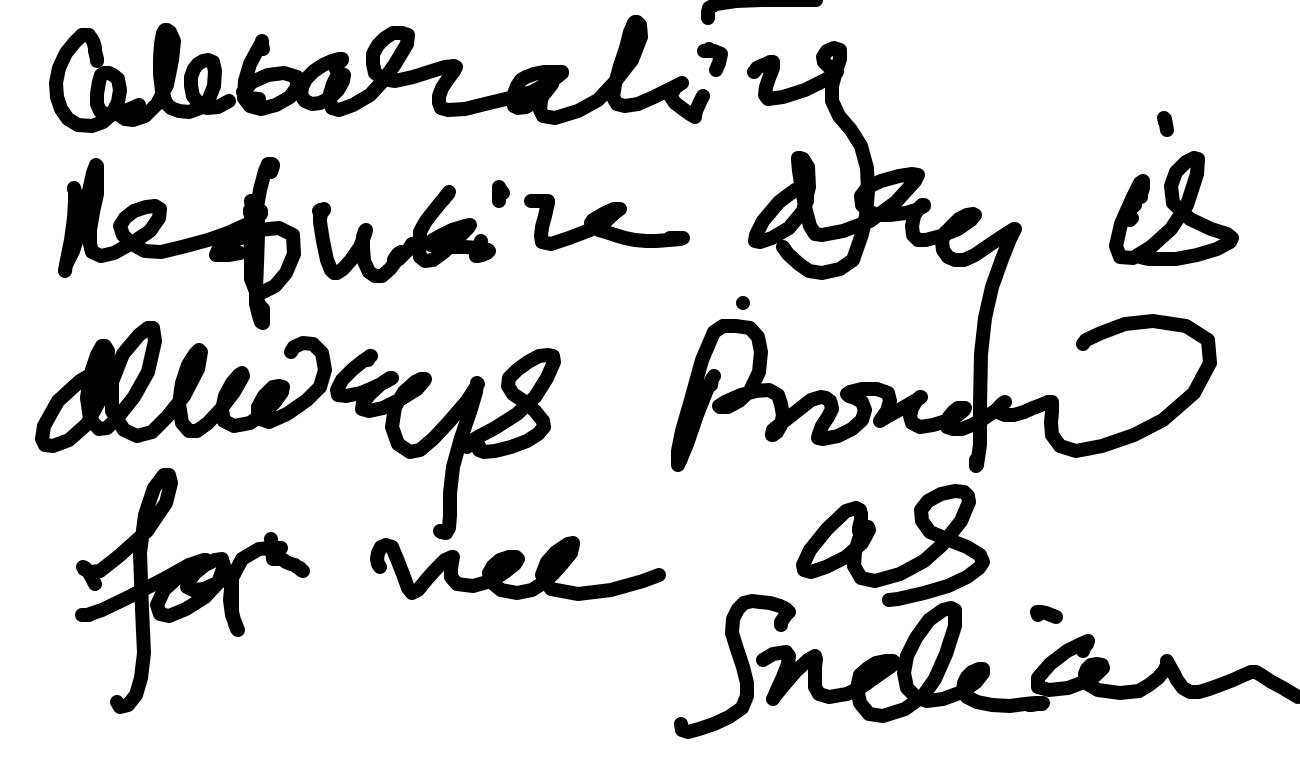 Celebrating
Republic day is
always Proud
for me as
Indian